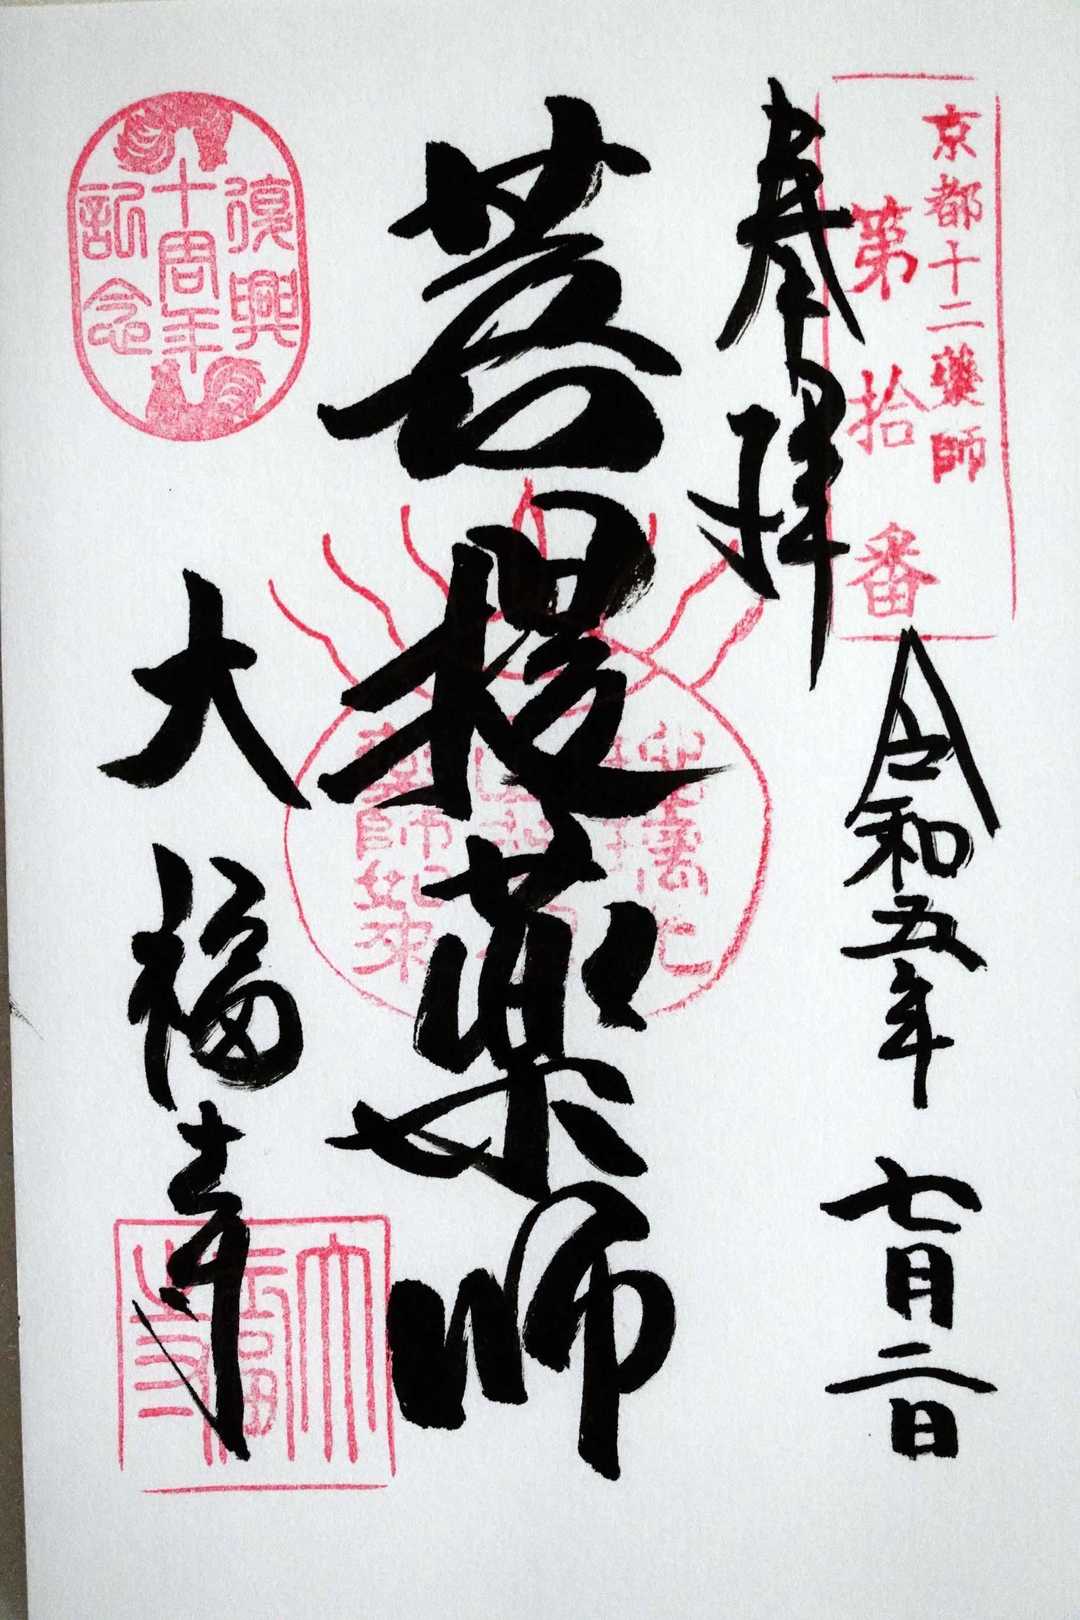 京都十二藥師
第拾番
奉拝
令和五年 七月二日
菩提薬師
大福寺
復興
十周年
記念
藥師如来
大福寺